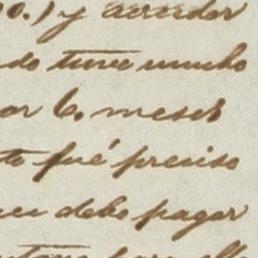 00.) y acreedor
do tuve mucho
or 6. meses
to fué preciso
debo pagar